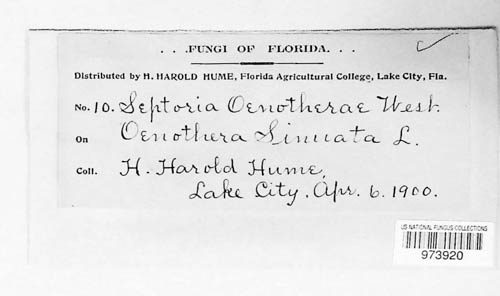 . . .FUNGI OF FLORIDA. . .
Distributed by H. HAROLD HUME, Florida Agricultural College, Lake City, Fla.
No. 10. Septoria Oenotherae West.
On Oenothera Sinuata L.
Coll. H. Harold Hume,
Lake City, Apr. 6. 1900.
US NATIONAL FUNGUS COLLECTIONS
973920